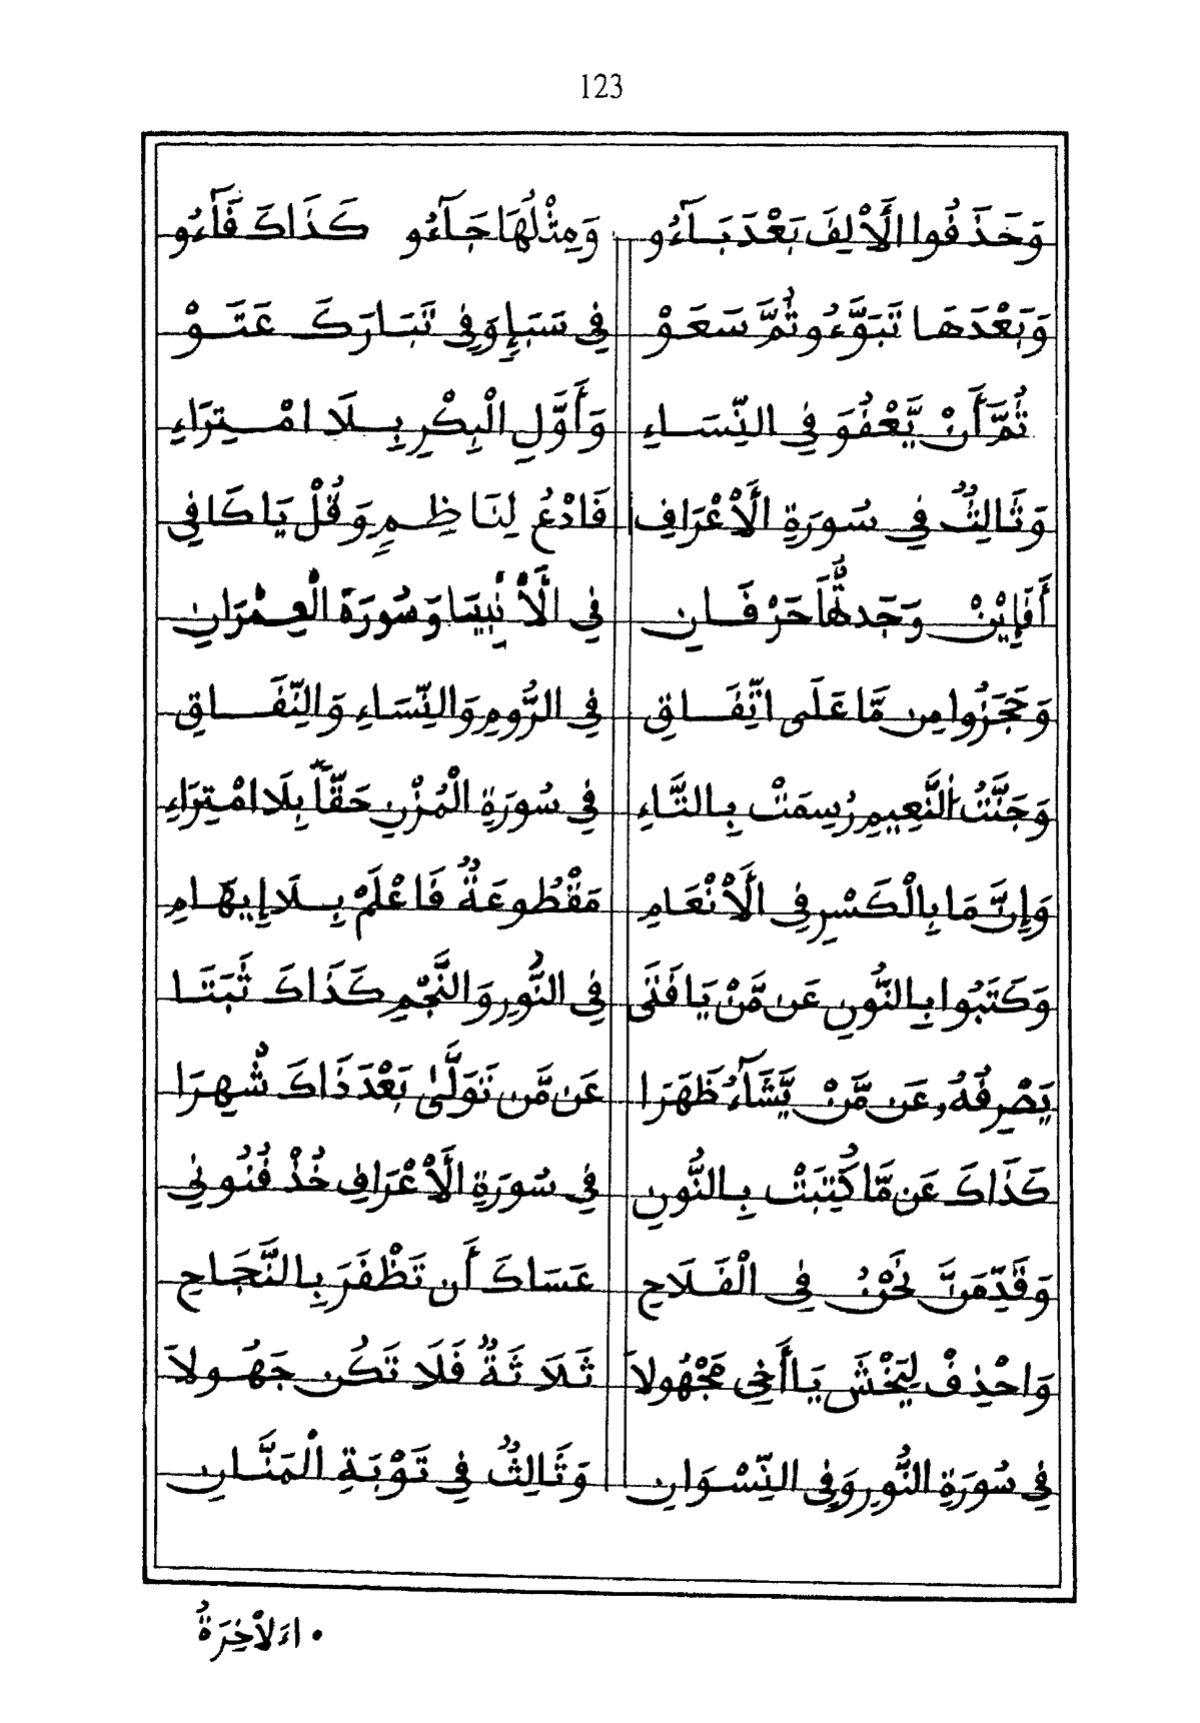 123
وَحَذَفُوا الْأَلِفَ بَعْدَ بَآءُو وَمِثْلُهَا جَآءُو كَذَاكَ فَآءُو
وَبَعْدَهَا تَبَوَّءُو ثُمَّ سَعَوْ فِي سَبَإٍ وَفِي تَبَارَكَ عَتَوْ
ثُمَّ أَنْ يَّعْفُوَ فِي النِّسَاءِ وَأَوَّلِ الْبِكْرِ بِلَا امْتِرَاءِ
وَثَالِثٌ فِي سُورَةِ الْأَعْرَافِ فَادْعُ لِنَاظِمٍ وَقُلْ يَا كَافِي
أَفَإِيْنْ وَجَدتُّهَا حَرْفَانِ فِي الْأَنْبِيَا وَسُورَةَ الْعِمْرَانِ
وَحَجَزُوا مِن مَّا عَلَى اتِّفَاقِ فِي الرُّومِ وَالنِّسَاءِ وَالنِّفَاقِ
وَجَنَّتُ النَّعِيمِ رُسِمَتْ بِالتَّاءِ فِي سُورَةِ الْمُزْنِ حَقّاً بِلَا امْتِرَاءِ
وَإِنَّ مَا بِالْكَسْرِ فِي الْأَنْعَامِ مَقْطُوعَةٌ فَاعْلَمْ بِلَا إِيهَامِ
وَكَتَبُوا بِالنُّونِ عَن مَّنْ يَا فَتَى فِي النُّورِ وَالنَّجْمِ كَذَاكَ ثَبَتَا
يَصْرِفُهُ عَن مَّنْ يَّشَآءُ ظَهَرَا عَن مَّن تَوَلَّىٰ بَعْدَ ذَاكَ شُهِرَا
كَذَاكَ عَن مَّا كُتِبَتْ بِالنُّونِ فِي سُورَةِ الْأَعْرَافِ خُذْ فُنُونِي
وَقَدِّمَنَّ نَحْنُ فِي الْفَلَاحِ عَسَاكَ أَن تَظْفَرَ بِالنَّجَاحِ
وَاحْذِفْ لِيَخْشَ يَا أَخِي مَجْهُولاَ ثَلاَثَةٌ فَلَا تَكُن جَهُولاَ
فِي سُورَةِ النُّورِ وَفِي النِّسْوَانِ وَثَالِثٌ فِي تَوْبَةِ الْمَنَّانِ
• اءَلاْخِرَةُ